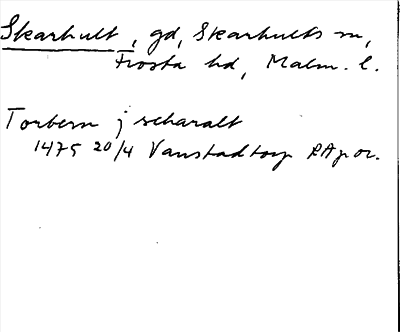 Skarhult, gd, Skarhults sn,
Frosta hd, Malm. l.
Torbern j scharalt
1475 20/4 Vanstadtorp RAp or.